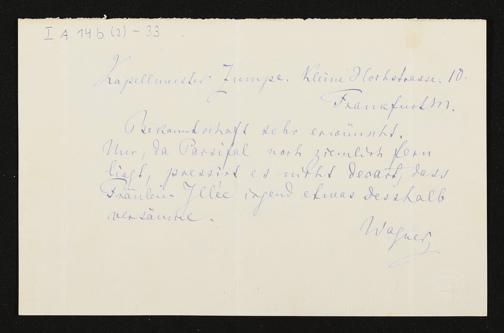 I A 14 b (2) - 33
Kapellmeister Zumpe. Kleine Hochstrasse. 10.
Frankfurt M.
Bekanntschaft sehr erwünscht.
Nur, da Parsifal noch ziemlich fern
liegt, pressirt es nicht derart, dass
Fräulein Jllée irgend etwas desshalb
versäume.
Wagner